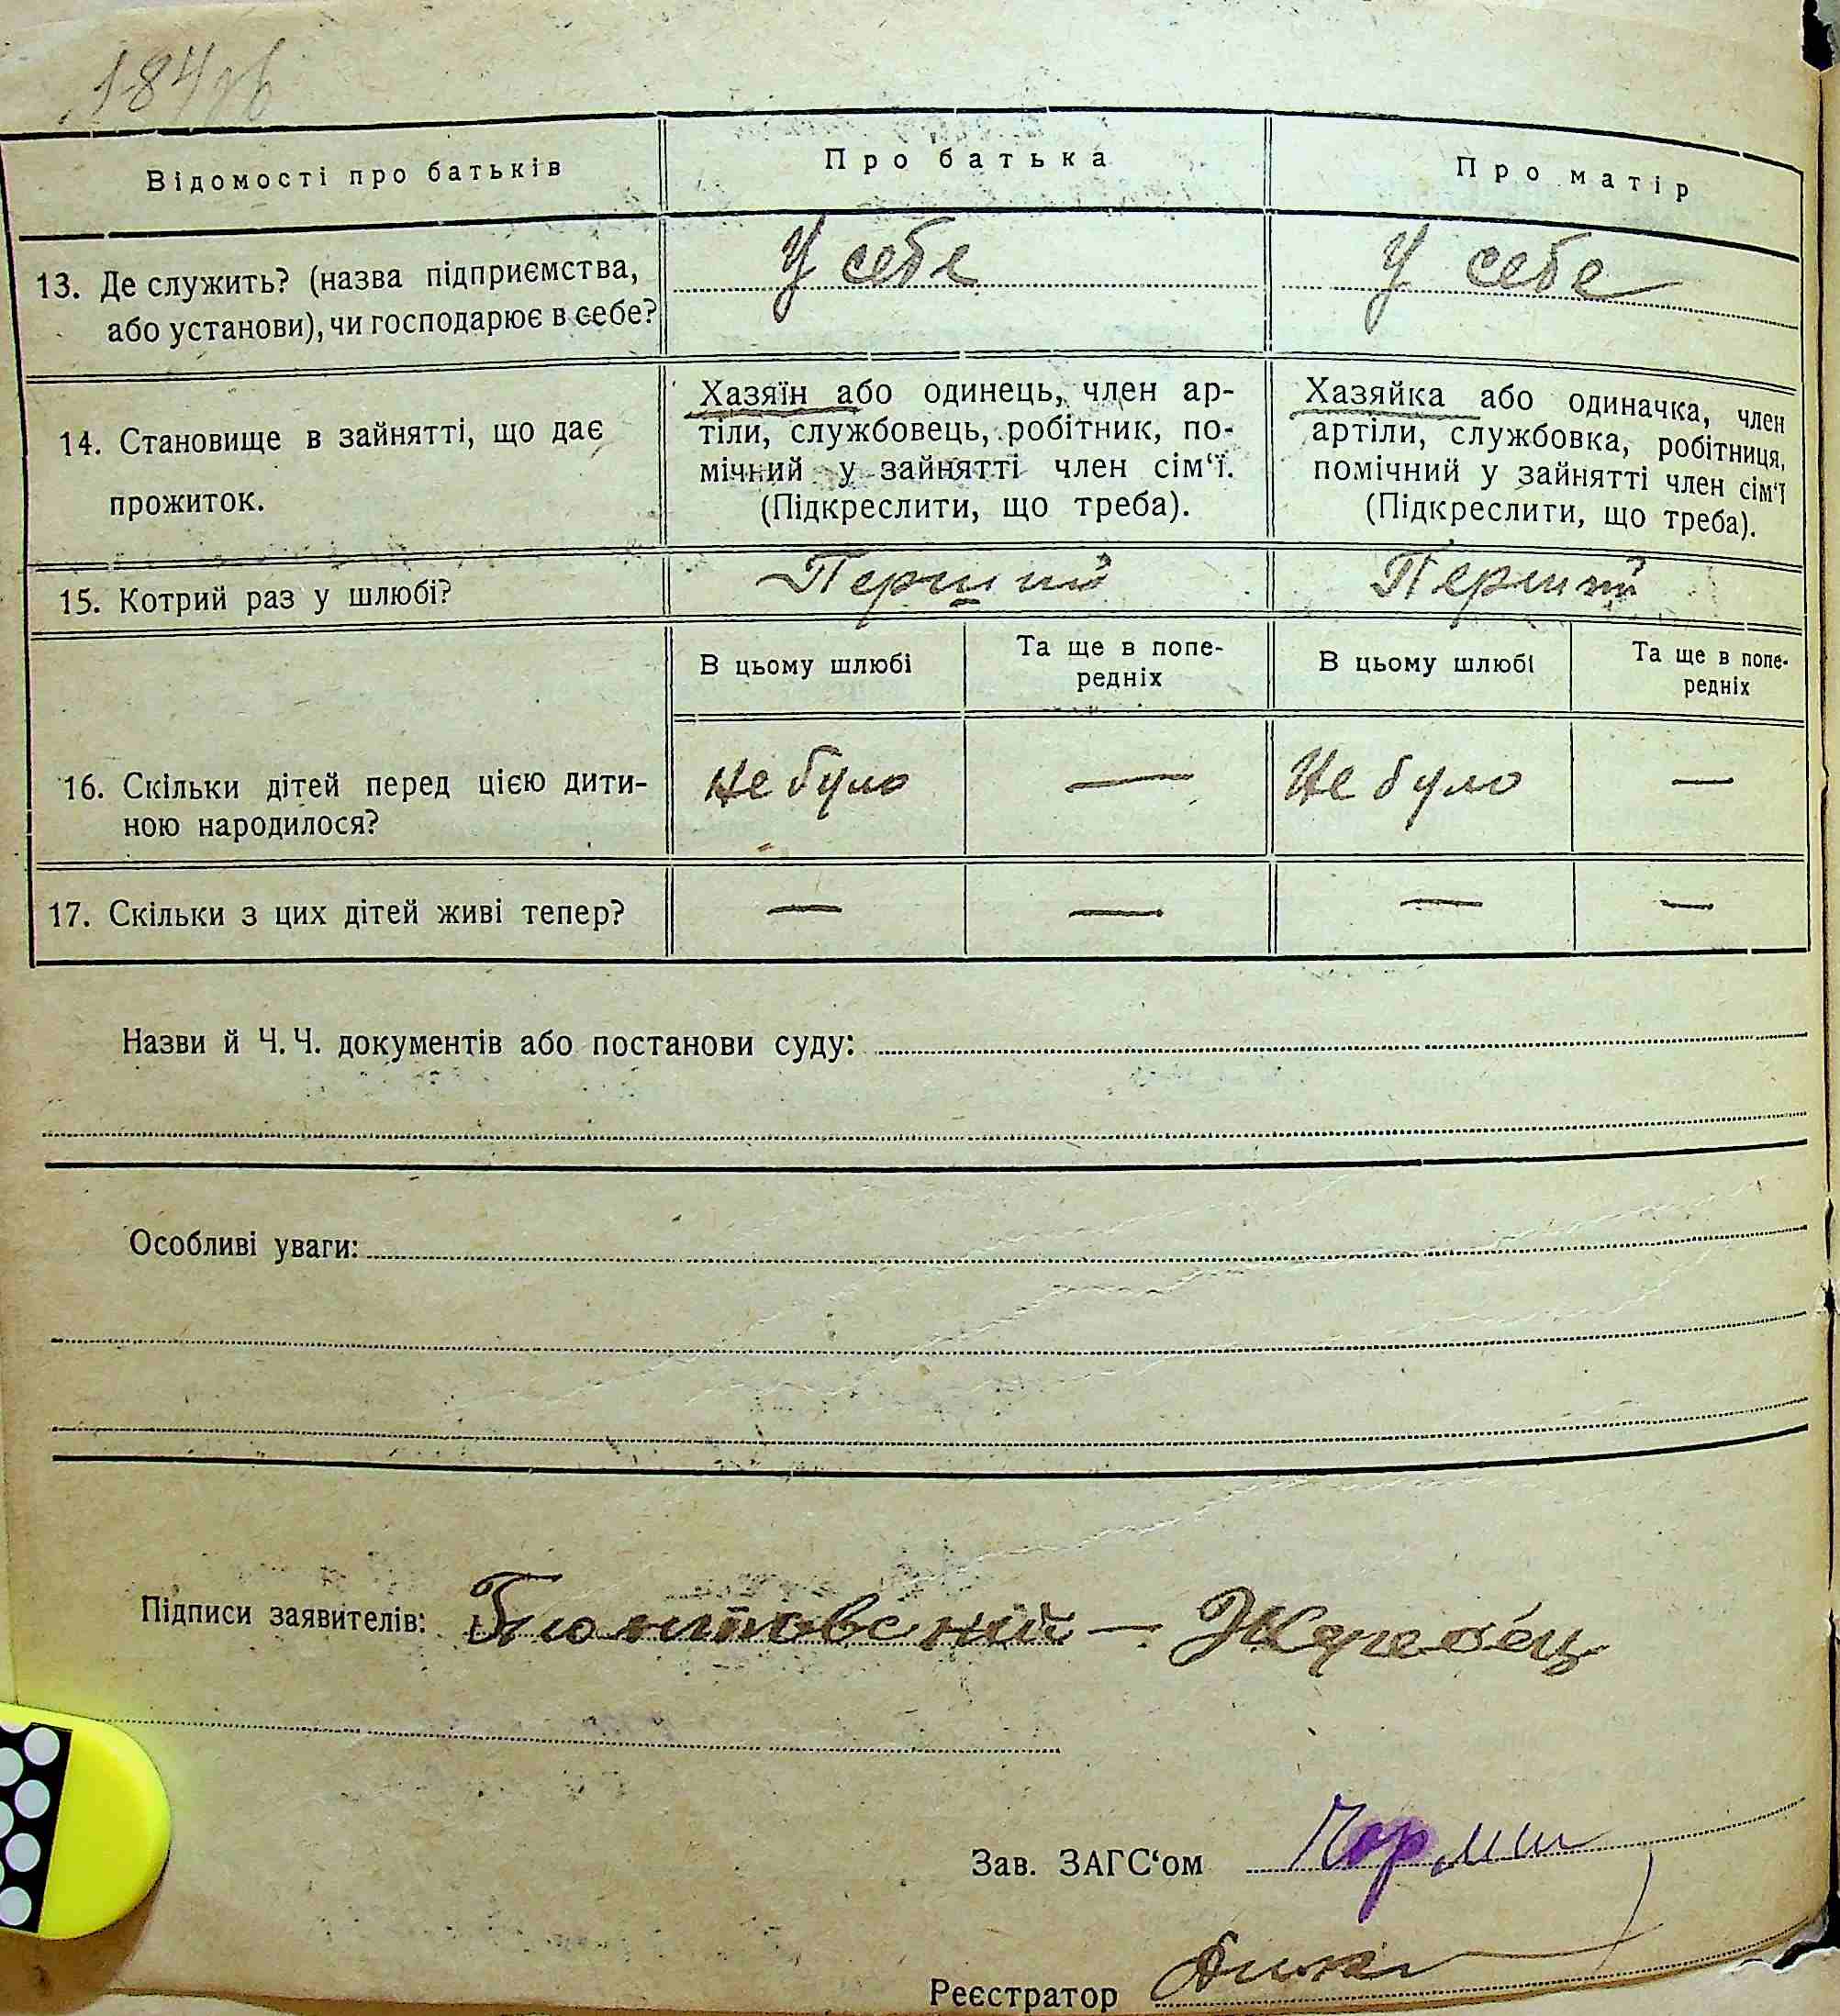 184зв
Відомості про батьків
Про батька
Про матір
13. Де служить? (назва підприємства,
або установи), чи господарює в себе?
У себе
У себе
14. Становище в зайнятті, що дає
прожиток.
Хазяїн або одинець, член ар-
тіли, службовець, робітник, по-
мічний у зайнятті член сім‘ї.
(Підкреслити, що треба).
Хазяйка або одиначка, член
артіли, службовка, робітниця,
помічний у зайнятті член сім‘ї
(Підкреслити, що треба).
15. Котрий раз у шлюбі?
Перший
Перший
В цьому шлюбі
Та ще в попе-
редніх
В цьому шлюбі
Та ще в попе-
редніх
16. Скільки дітей перед цією дити-
ною народилося?
Не було
—
Не було
—
17. Скільки з цих дітей живі тепер?
—
—
—
—
Назви й Ч. Ч. документів або постанови суду:
Особливі уваги:
Підписи заявителів:
Зав. ЗАГС‘ом
Реєстратор